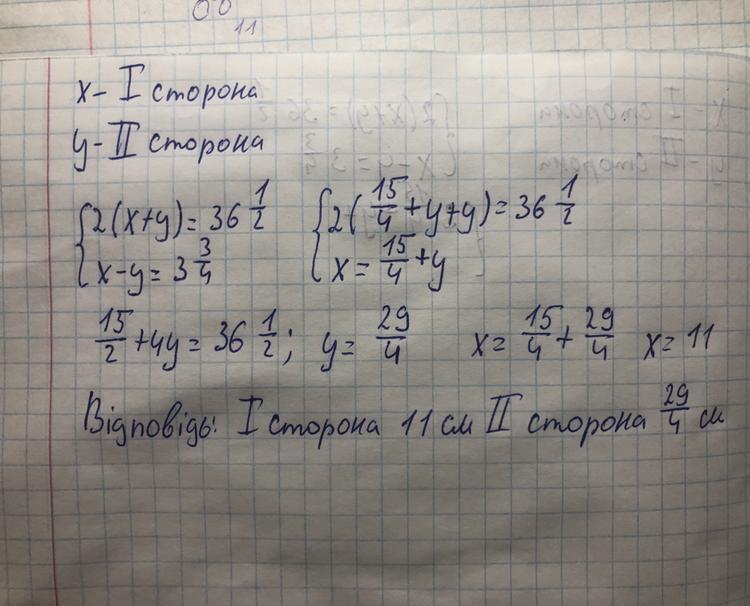 11
x - I сторона
y - II сторона
{2(x+y) = 36 1/2 {2(15/4 + y + y) = 36 1/2
{x - y = 3 3/4 {x = 15/4 + y
15/2 + 4y = 36 1/2; y = 29/4 x = 15/4 + 29/4 x = 11
Відповідь: I сторона 11 см II сторона 29/4 см